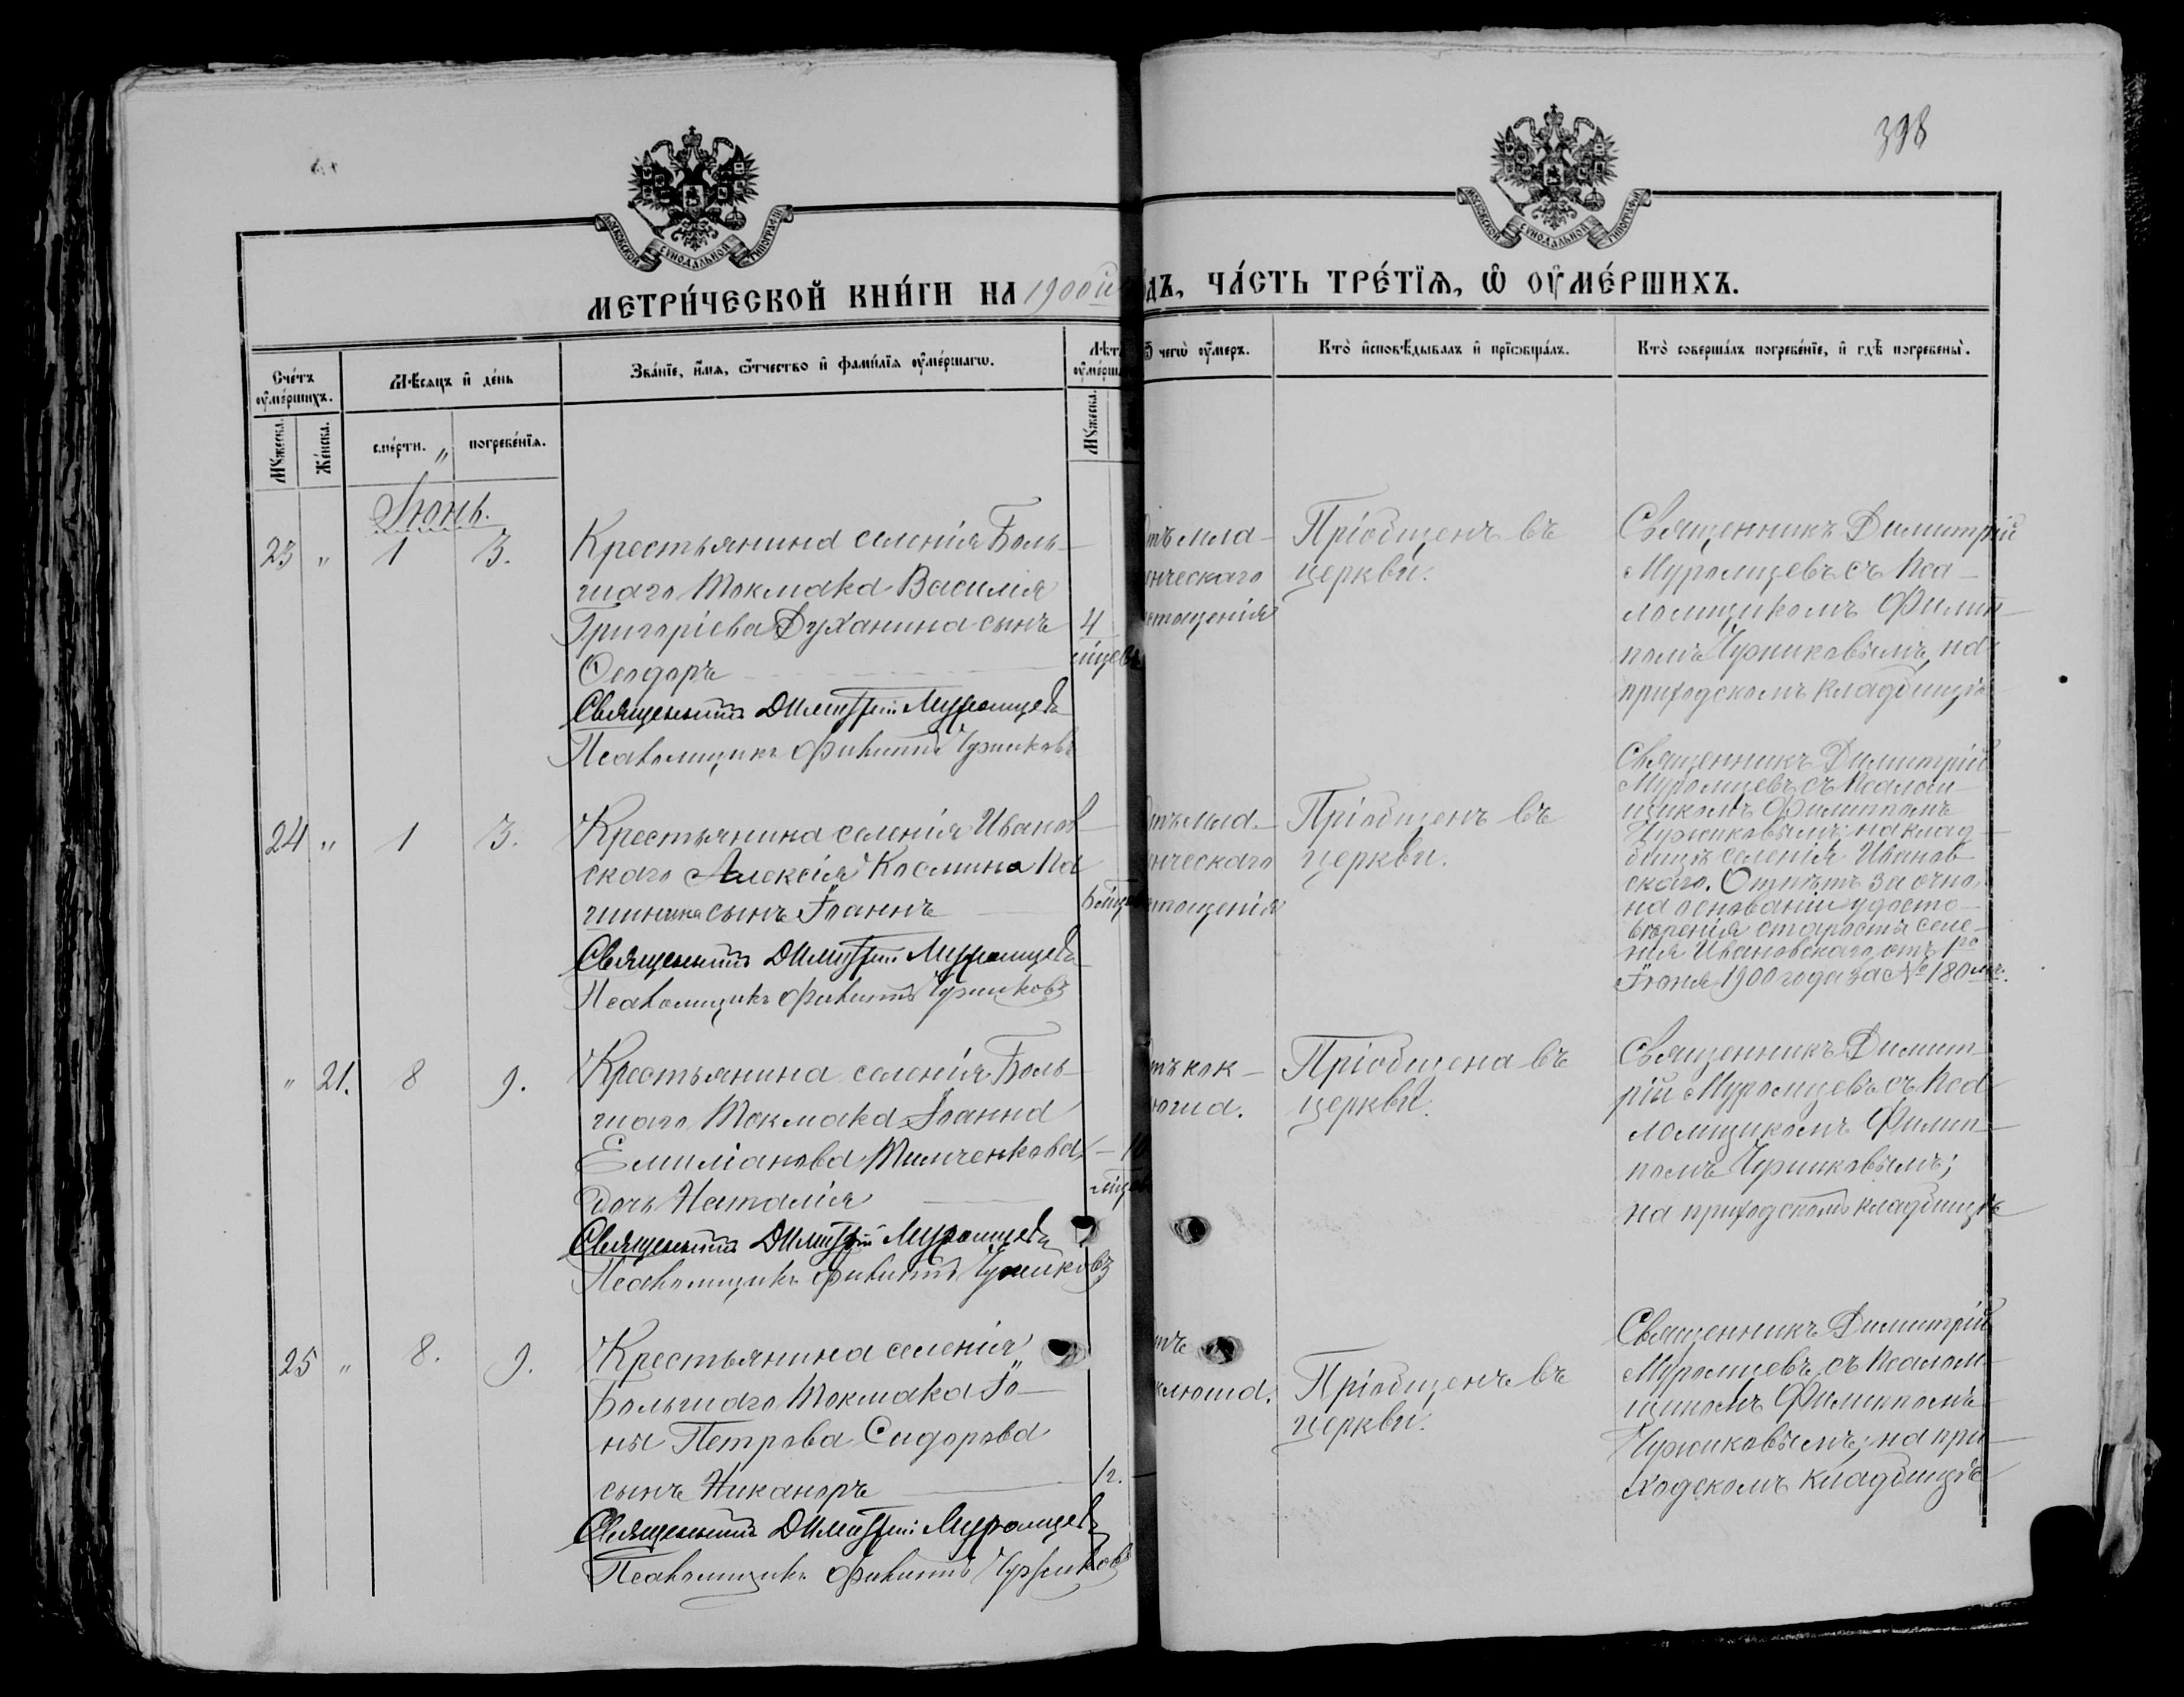 398
МОСКОВСКОЙ СѴНОДАЛЬНОЙ ТИПОГРАФІИ
МОСКОВСКОЙ СѴНОДАЛЬНОЙ ТИПОГРАФІИ
МЕТРИ́ЧЕСКОЙ КНИ́ГИ НА 1900й
дъ, ЧА́СТЬ ТРЕ́ТЇѦ, Ѡ҆ ОУ҆МЕ́РШИХЪ.
Сче́тъ оу҆ме́ршихъ.
Мꙋжеска.
Же́нска.
Мѣ́сѧцъ и҆ де́нь
сме́рти.
погребе́нїѧ.
Зва́нїе, и҆́мѧ, ѻ҆́тчество и҆ фами́лїѧ оу҆ме́ршагѡ.
Лѣт
оу҆ме́рш
Мꙋжеска.
Ѿ чегѡ̀ оу҆́меръ.
Кто̀ и҆сповѣ́дывалъ и҆ прїѡбща́лъ.
Кто̀ соверша́лъ погребе́нїе, и҆ гдѣ̀ погребены̀.
Іюнь.
23 " 1 3.
Крестьянина селенія Боль-
шаго Токмака Василія
Григоріева Духанина сынъ
Ѳеодоръ
4
Священникъ Димитрій Муромцевъ
Псаломщикъ Филиппъ Чурилковъ
тъ мла-
нческаго
стощенія
Пріобщенъ въ
церкви.
Священникъ Димитрій
Муромцевъ съ Пса-
ломщикомъ Филип-
помъ на
приходскомъ кладбищѣ
24 " 1 3.
Крестьянина селенія Иванов-
скаго Алексія Космина
сынъ Іоаннъ
Священникъ Димитрій Муромцевъ
Псаломщикъ Филиппъ
тъ мла-
нческаго
стощенія
Пріобщенъ въ
церкви.
Священникъ Димитрій
Муромцевъ съ Псалом-
щикомъ Филиппомъ
на клад-
бищѣ селенія Иванов-
скаго. Отпѣтъ заочно,
на основаніи удосто-
вѣренія старосты селе-
нія Ивановскаго отъ 1го
Іюня 1900 года за № 180
" 21. 8 9.
Крестьянина селенія Боль-
шаго Токмака Іоанна
Емиліанова Тимченкова
дочь Наталія
Священникъ Димитрій Муромцевъ
Псаломщикъ Филиппъ
тъ кок-
юша.
Пріобщена въ
церкви.
Священникъ Димит-
рій Муромцевъ съ Пса-
ломщикомъ Филип-
помъ
на приходскомъ кладбищѣ
25 " 8. 9.
Крестьянина селенія
Большаго Токмака Іо-
ны Петрова Сидорова
сынъ Никаноръ
1г.
Священникъ Димитрій Муромцевъ
Псаломщикъ Филиппъ
тъ
клюша.
Пріобщенъ въ
церкви.
Священникъ Димитрій
Муромцевъ съ Псалом-
щикомъ Филиппомъ
на при-
ходскомъ кладбищѣ